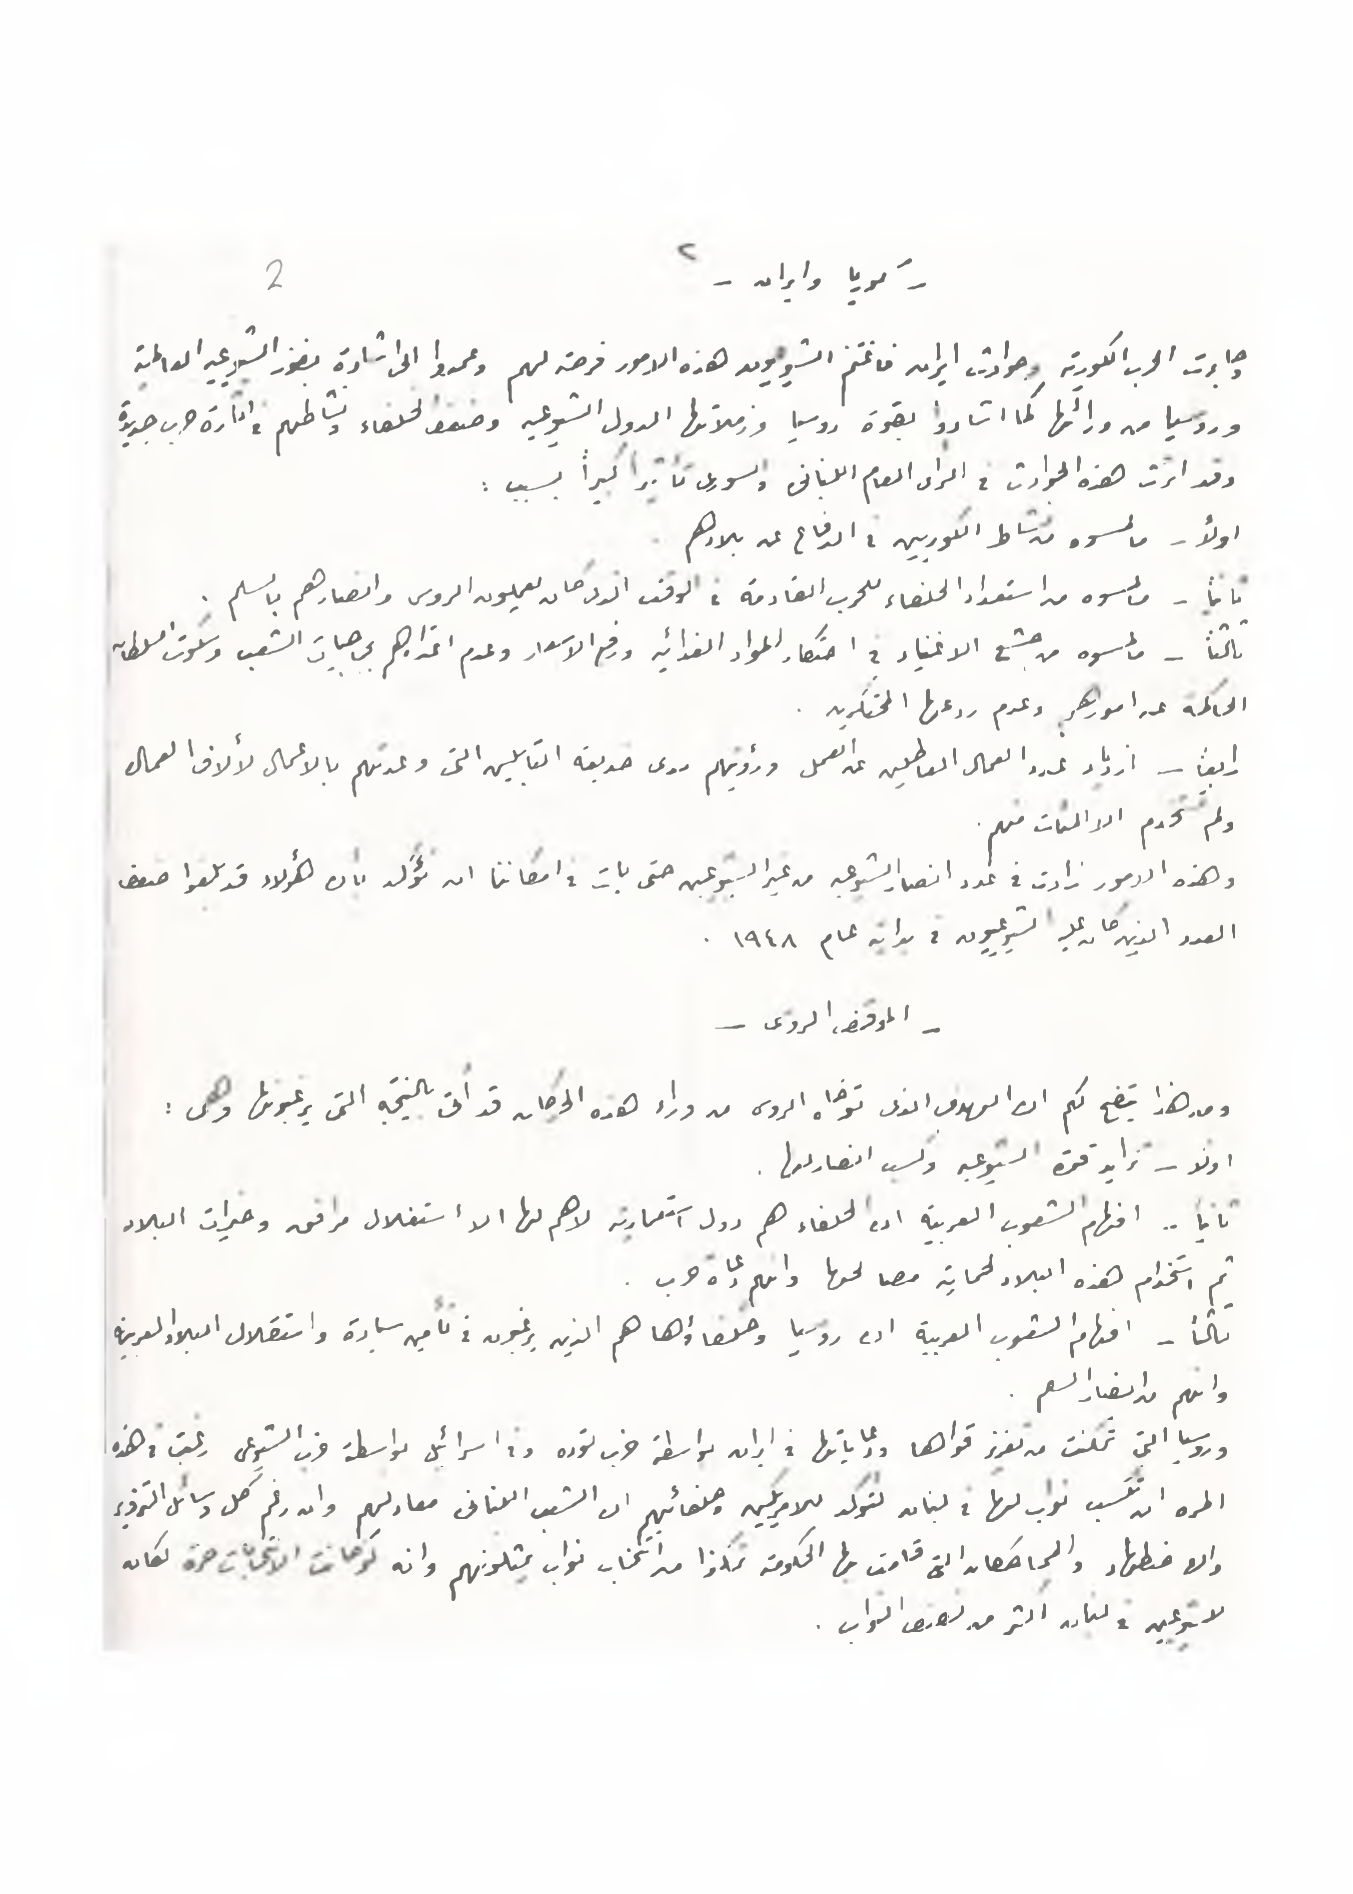 ٢
2
- كوريا وايران -
وجاءت الحرب الكورية وحوادث ايران فاغتنم الشيوعيون هذه الامور فرصة لهم وعمدوا الى اشادة بفوز الشيوعيه العالمية
وروسيا من ورائها كما اشادوا بقوة روسيا وزميلاتها الدول الشيوعيه وضعف الحلفاء ونشاطهم في اثارة حرب جديدة
وقد اثرت هذه الحوادث في الرأى العام اللبنانى والسورى تأثيراً كبيراً بسبب :
اولاً - ما لمسوه من نشاط الكوريين في الدفاع عن بلادهم .
ثانياً - ما لمسوه من استعداد الحلفاء للحرب القادمة في الوقت الذى كان يعملون الروس وانصارهم بالسلم .
ثالثاً - ما لمسوه من جشع الاغنياء في احتكار المواد الغذائيه ورفع الاسعار وعدم اهتمامهم بحاجيات الشعب وسكوت السلطات
الحاكمة عن امورهم وعدم ردعها المحتكرين .
رابعاً - ازدياد عدد العمال العاطلين عن العمل ورؤيتهم مدى التى وعدتهم بالاعمال لألاف العمال
ولم تستخدم الا المئات منهم .
وهذه الامور زادت في عدد انصار الشيوعيه من غير الشيوعيين حتى بات في امكاننا ان نؤكد بأن هؤلاء قد بلغوا ضعف
العدد الذين كان عليه الشيوعيون في بداية عام ١٩٤٨ .
- الموقف الروسى -
ومن هذا يتضح لكم ان الهدف الذى توخاه الروس من وراء هذه الحركات قد أتى بالنتيجه التى يرغبونها وهى :
اولاً - تزايد قوة الشيوعيه وكسب انصار لها .
ثانياً - افهام الشعوب العربية ان الحلفاء هم دول استعماريه لا هم لها الا استغلال مرافق وخيرات البلاد
ثم استخدام هذه البلاد لحماية مصالحها وانهم دعاة حرب .
ثالثاً - افهام الشعوب العربية ان روسيا وحلفاؤها هم الذين يرغبون في تأمين سيادة واستقلال البلاد العربية
وانهم من انصار السلم .
وروسيا التى تمكنت من تعزيز قواها ودعاياتها في ايران بواسطة حزب توده وفي اسرائيل بواسطة حزب الشيوعى رغبت في هذه
المره ان تكسب نواب لها في لبنان لتؤكد للامريكيين وحلفائهم ان الشعب اللبنانى معاد لهم وان رغم كل وسائل التزوير
والاضطهاد والمحاكمات التى قامت بها الحكومة تمكنوا من انتخاب نواب يمثلونهم وانه لو كانت الانتخابات حرة لكان
للشيوعيين في لبنان اكثر من نصف النواب .